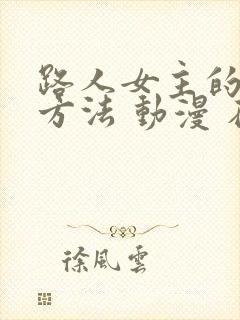 路人女主的
方法 動漫
徐風雲